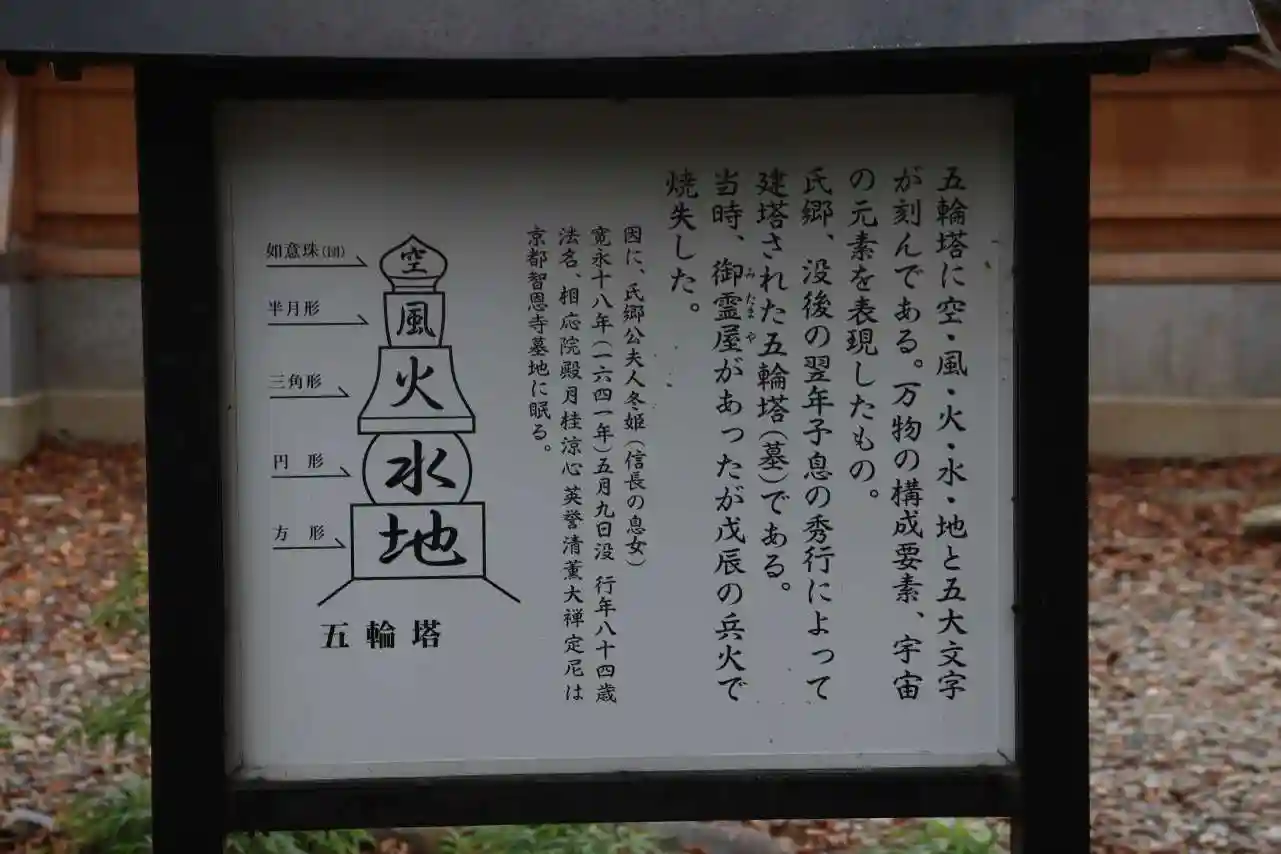 五輪塔に空・風・火・水・地と五大文字
が刻んである。万物の構成要素、宇宙
の元素を表現したもの。
氏郷、没後の翌年子息の秀行によって
建塔された五輪塔(墓)である。
当時、御霊屋があったが戊辰の兵火で
みたまや
焼失した。
因に、氏郷公夫人冬姫(信長の息女)
寛永十八年(一六四一年)五月九日没 行年八十四歳
法名、相応院殿月桂涼心英誉清薫大禅定尼は
京都智恩寺墓地に眠る。
如意珠(団)
半月形
三角形
円 形
方 形
空
風
火
水
地
五輪塔